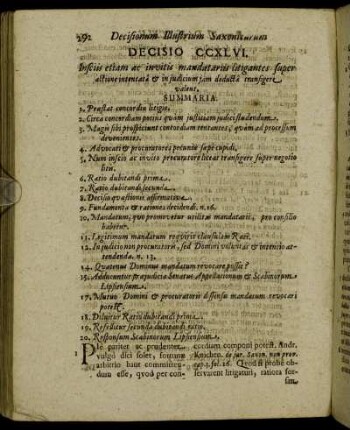 292 Decisionum Illustrium Saxonicarum
DECISIO CCXLVI.
Insciis etiam ac invitis mandatariis litigantes super
actione intentatâ & in judicium jam deductâ transigere
valent.
SUMMARIA.
1. Præstat concordia litigiis.
2. Circa concordiam potius quàm justitiam judici studendum.
3. Magis sibi prospiciunt concordiam tentantes, quàm ad processum
devenientes.
4. Advocati & procuratores pecuniæ sæpè cupidi.
5. Num inscio ac invito procuratore liceat transigere super negotio
litis.
6. Ratio dubitandi prima.
7. Ratio dubitandi secunda.
8. Decisio quæstionis affirmativa.
9. Fundamenta & rationes decidendi. n. 16.
10. Mandatum, quo promovetur utilitas mandatarii, pro consilio
habetur.
11. Legitimum mandatum requirit clausulam Rati.
12. In judicio non procuratoris, sed Domini voluntas & intentio at-
tendenda. n. 13.
14. Quatenus Dominus mandatum revocare possit?
15. Adducuntur præjudicia Senatus Appellationum & Scabinorum
Lipsiensium.
17. Mutuo Domini & procuratoris dissensu mandatum revocari
potest.
18. Diluitur Ratio dubitandi prima.
19. Refellitur secunda dubitandi ratio.
20. Responsum Scabinorum Lipsiensium.
1 Piè pariter ac prudenter
vulgò dici solet, summo
arbitrio haut committen-
dum esse, quod per con-
cordiam componi potest. Andr.
Knichen. de jur. Saxon. non prov.
cap. 3. fol. 16. Quod si probè ob-
servarent litigaturi, rariora for-
sin